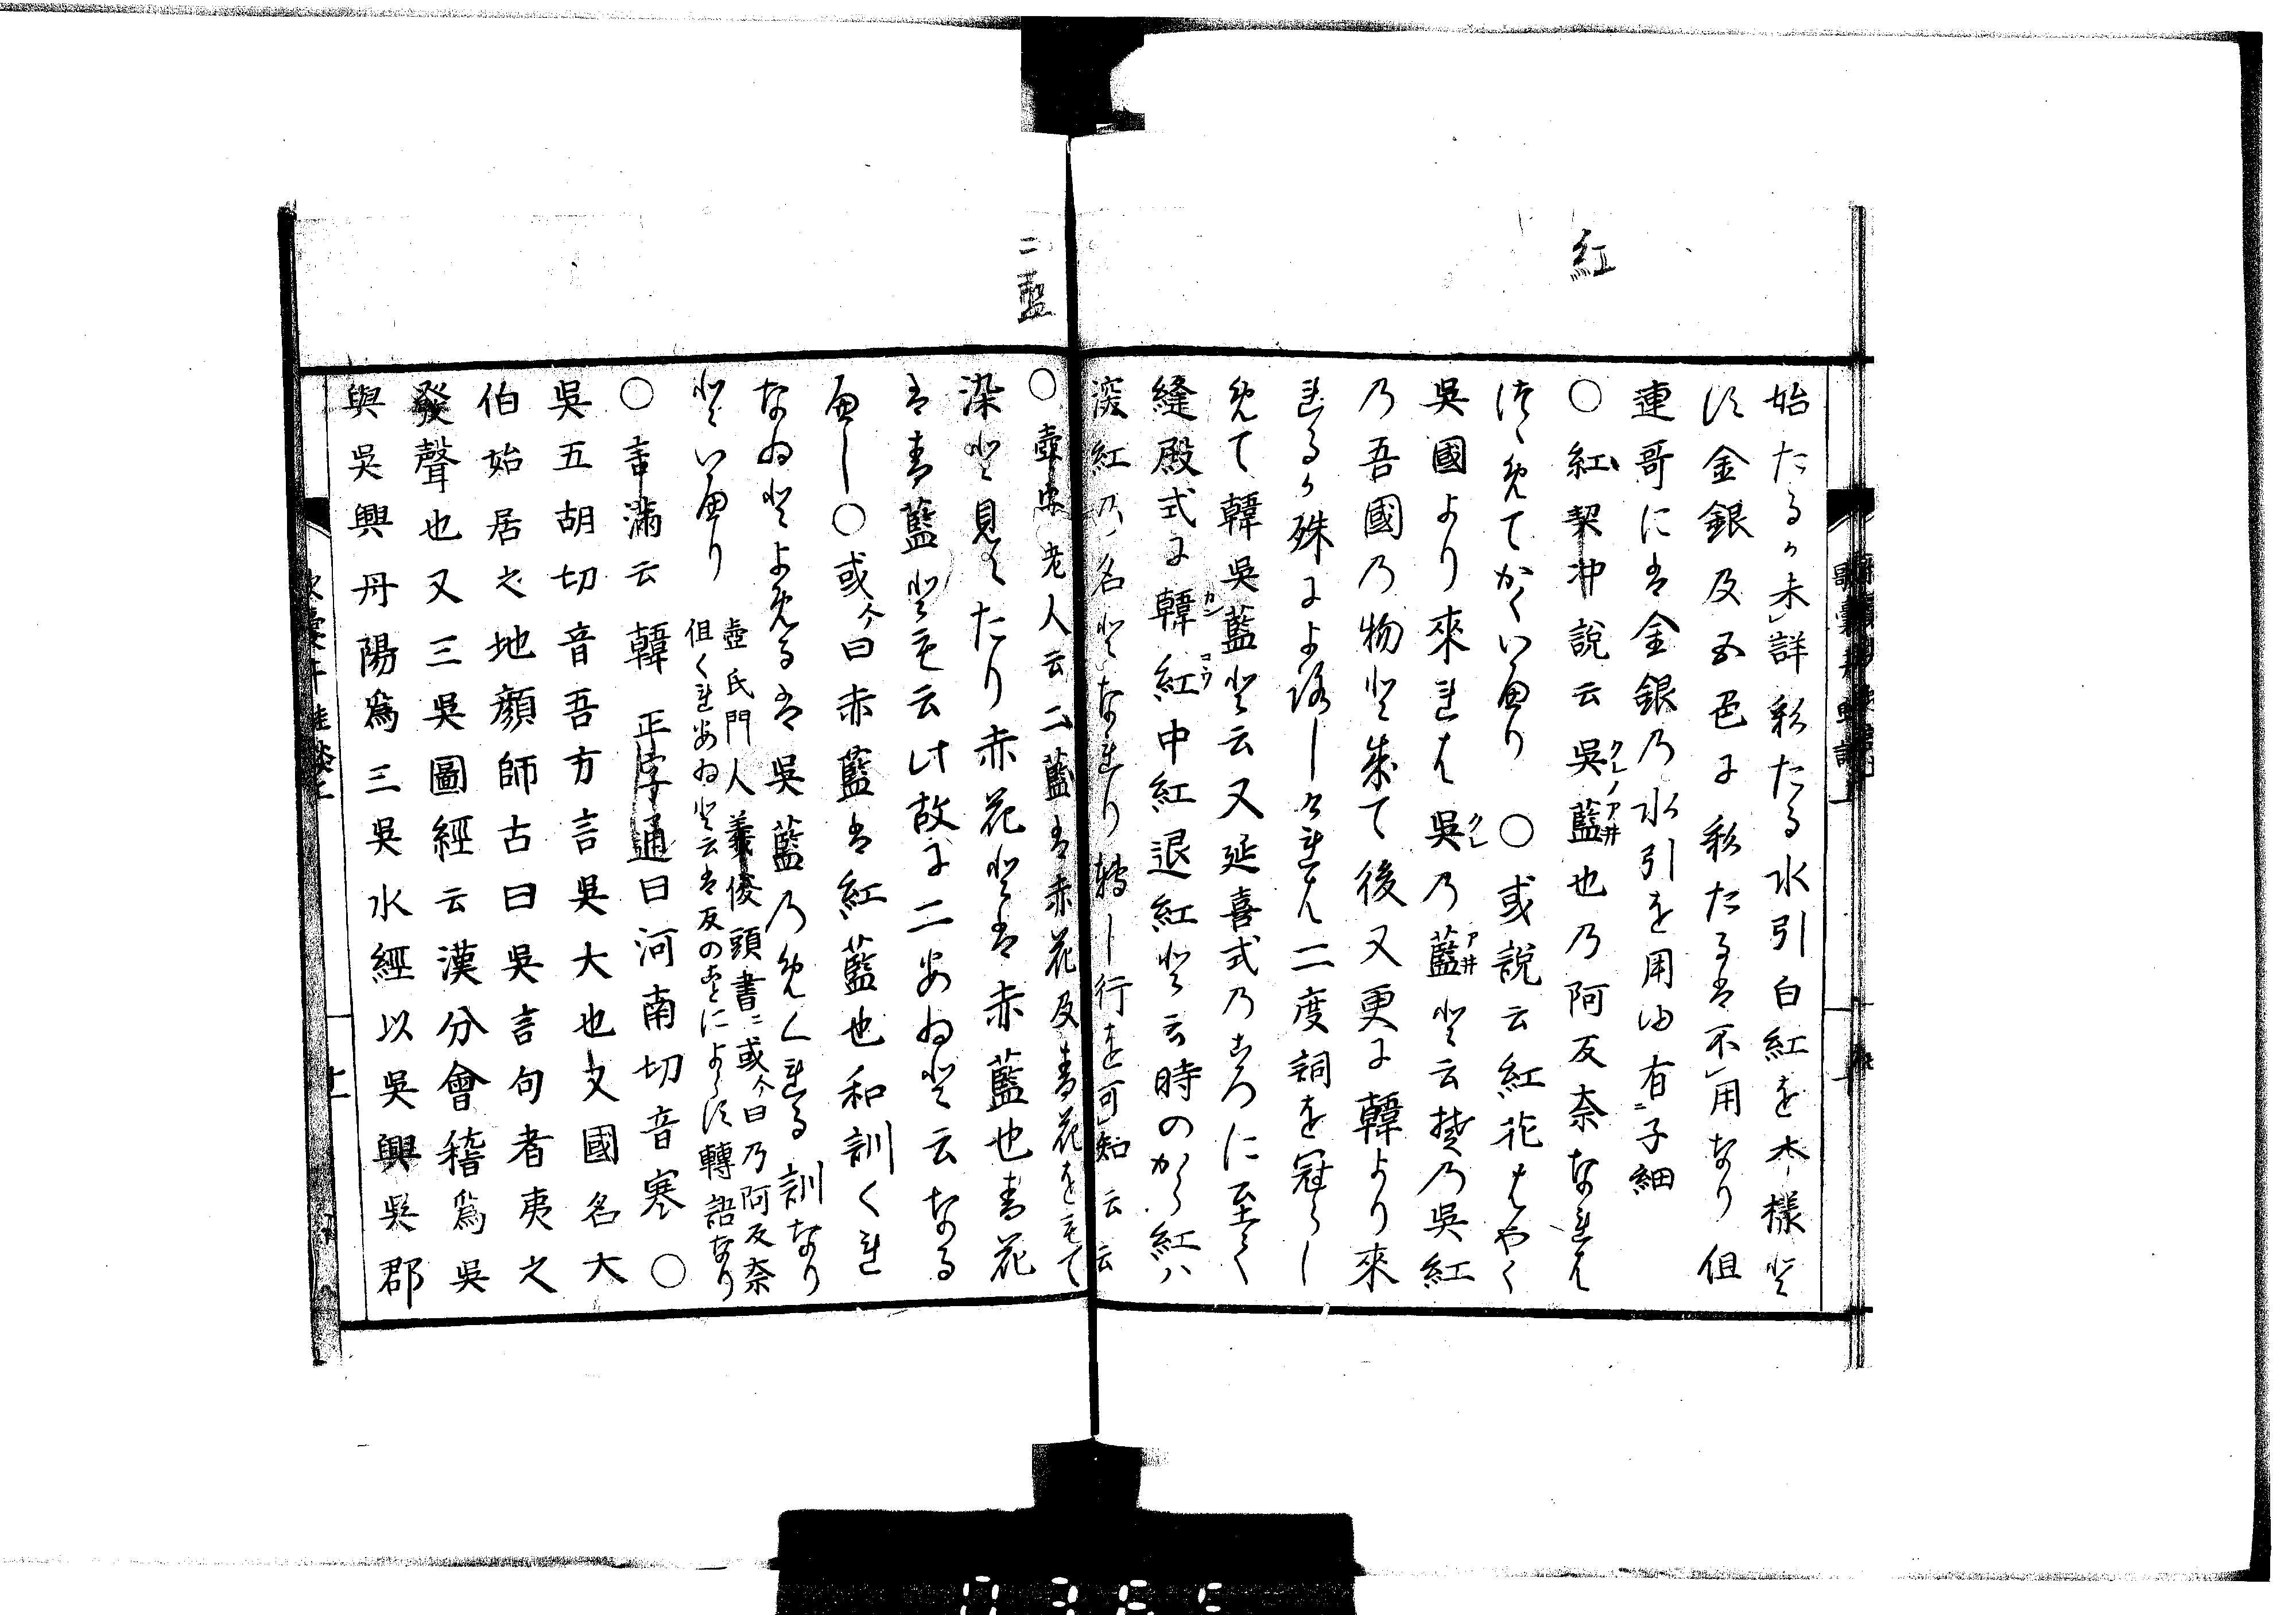 紅
始たるか未詳彩たる水引白紅を本様と
す金銀及五色に彩たるは不用なり但
連哥には金銀乃水引を用ゆ有ニ子細
○紅契沖説云呉藍也乃阿反奈なれは
つゝめてかくいへり○或説云紅花はやく
呉國より來れは呉乃藍と云焚乃呉紅
乃吾國乃物と成て後又更に韓より來
れるか殊によろしけれは二度詞を冠らし
めて韓呉藍と云又延喜式乃ころに至て
縫殿式に韓紅中紅退紅と云時のから紅ハ
深紅乃名となれり轉し行を可知云云
二藍
○壺忠老人云二藍は赤花及青花をもて
染と見えたり赤花とは赤藍也青花
は青藍とも云此故に二あゐと云なる
へし○或今曰赤藍は紅藍也和訓くれ
なゐとよめるは呉藍乃めくれる訓なり
といへり
壺氏門人義俊頭書ニ或今曰乃阿反奈
但くれあゐと云は反のことによらす轉語なり
○言滿云韓正字通曰河南切音寒○
呉五胡切音吾方言呉大也又國名大
伯始居之地顔師古曰呉言句者夷之
發聲也又三呉圖經云漢分會稽爲呉
與呉興丹陽爲三呉水經以呉興呉郡